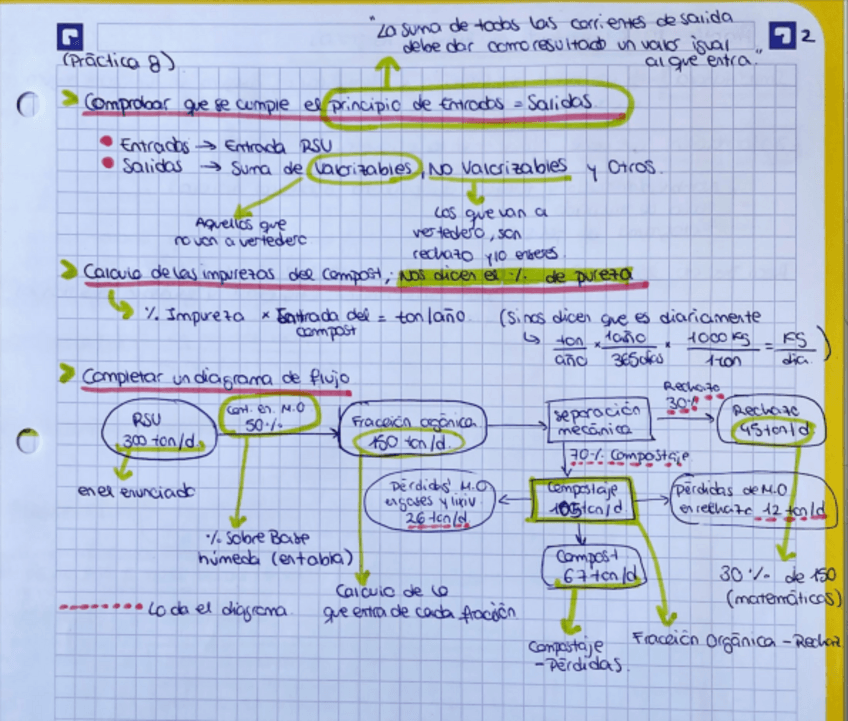 "La suma de todas las corrientes de salida
debe dar como resultado un valor igual
al que entra."
2
(Práctica 8)
Comprobar que se cumple el principio de Entradas = Salidas
Entradas → Entrada RSU
Salidas → Suma de Valorizables, No Valorizables y Otros.
Aquellos que
no van a vertedero
Los que van a
vertedero, son
rechazo y/o enseres.
Calculo de las impurezas del compost; Nos dicen el % de pureza
% Impureza × Entrada del = ton/año
compost
(Si nos dicen que es diariamente
ton/año × 1año/365días × 1000 kg/1ton = kg/día)
Completar un diagrama de flujo
RSU
300 ton/d
Cont. en. M.O
50%
Fracción orgánica
150 ton/d
separación
mecánica
Rechazo
30%
Rechazo
45 ton/d
70% Compostaje
Pérdidas M.O
en gases y lixiv.
26 ton/d
Compostaje
105 ton/d
Pérdidas de M.O
en rechazo 12 ton/d
Compost
67 ton/d
en el enunciado
% sobre Base
húmeda (en tabla)
Calculo de lo
que entra de cada fracción
30% de 150
(matemáticas)
Lo da el diagrama
Compostaje
- Pérdidas.
Fracción Orgánica - Rechaz